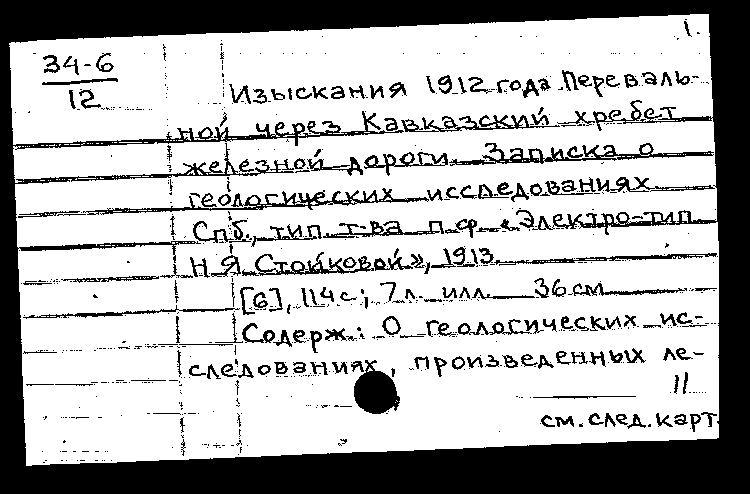 1.
34-6
12
Изыскания 1912 года Переваль-
ной через Кавказский хребет
железной дороги. Записка о
геологических исследованиях
Спб., тип. т-ва п. ф. «Электро-тип.
Н. Я. Стойковой», 1913.
[6], 114 с.; 7 л. илл. 36 см
Содерж.: О геологических ис-
следованиях, произведенных ле-
11
см. след. карт.